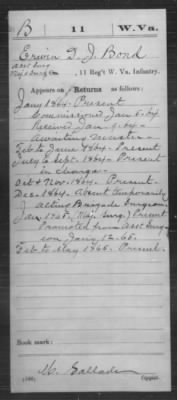 B | 11 | W. Va.
Erwin D. J. Bond
Asst Surg
Maj & Surg Co. , 11 Reg't W. Va. Infantry.
Appears on Returns as follows:
Jany 1864. Present
Commissioned Jan 5. 64
Received Jan 9. 64.
Awaiting muster.
Feb to June 1864. Present
July & Sept. 1864. Present
in charge.
Oct & Nov. 1864. Present.
Dec. 1864. Absent temporarily
acting Brigade Surgeon.
Jan. 1865. (Maj. Surg.) Present
Promoted from Asst Surg-
eon Jany 12. 65.
Feb to May 1865. Present.
Book mark:
(546) Copyist.